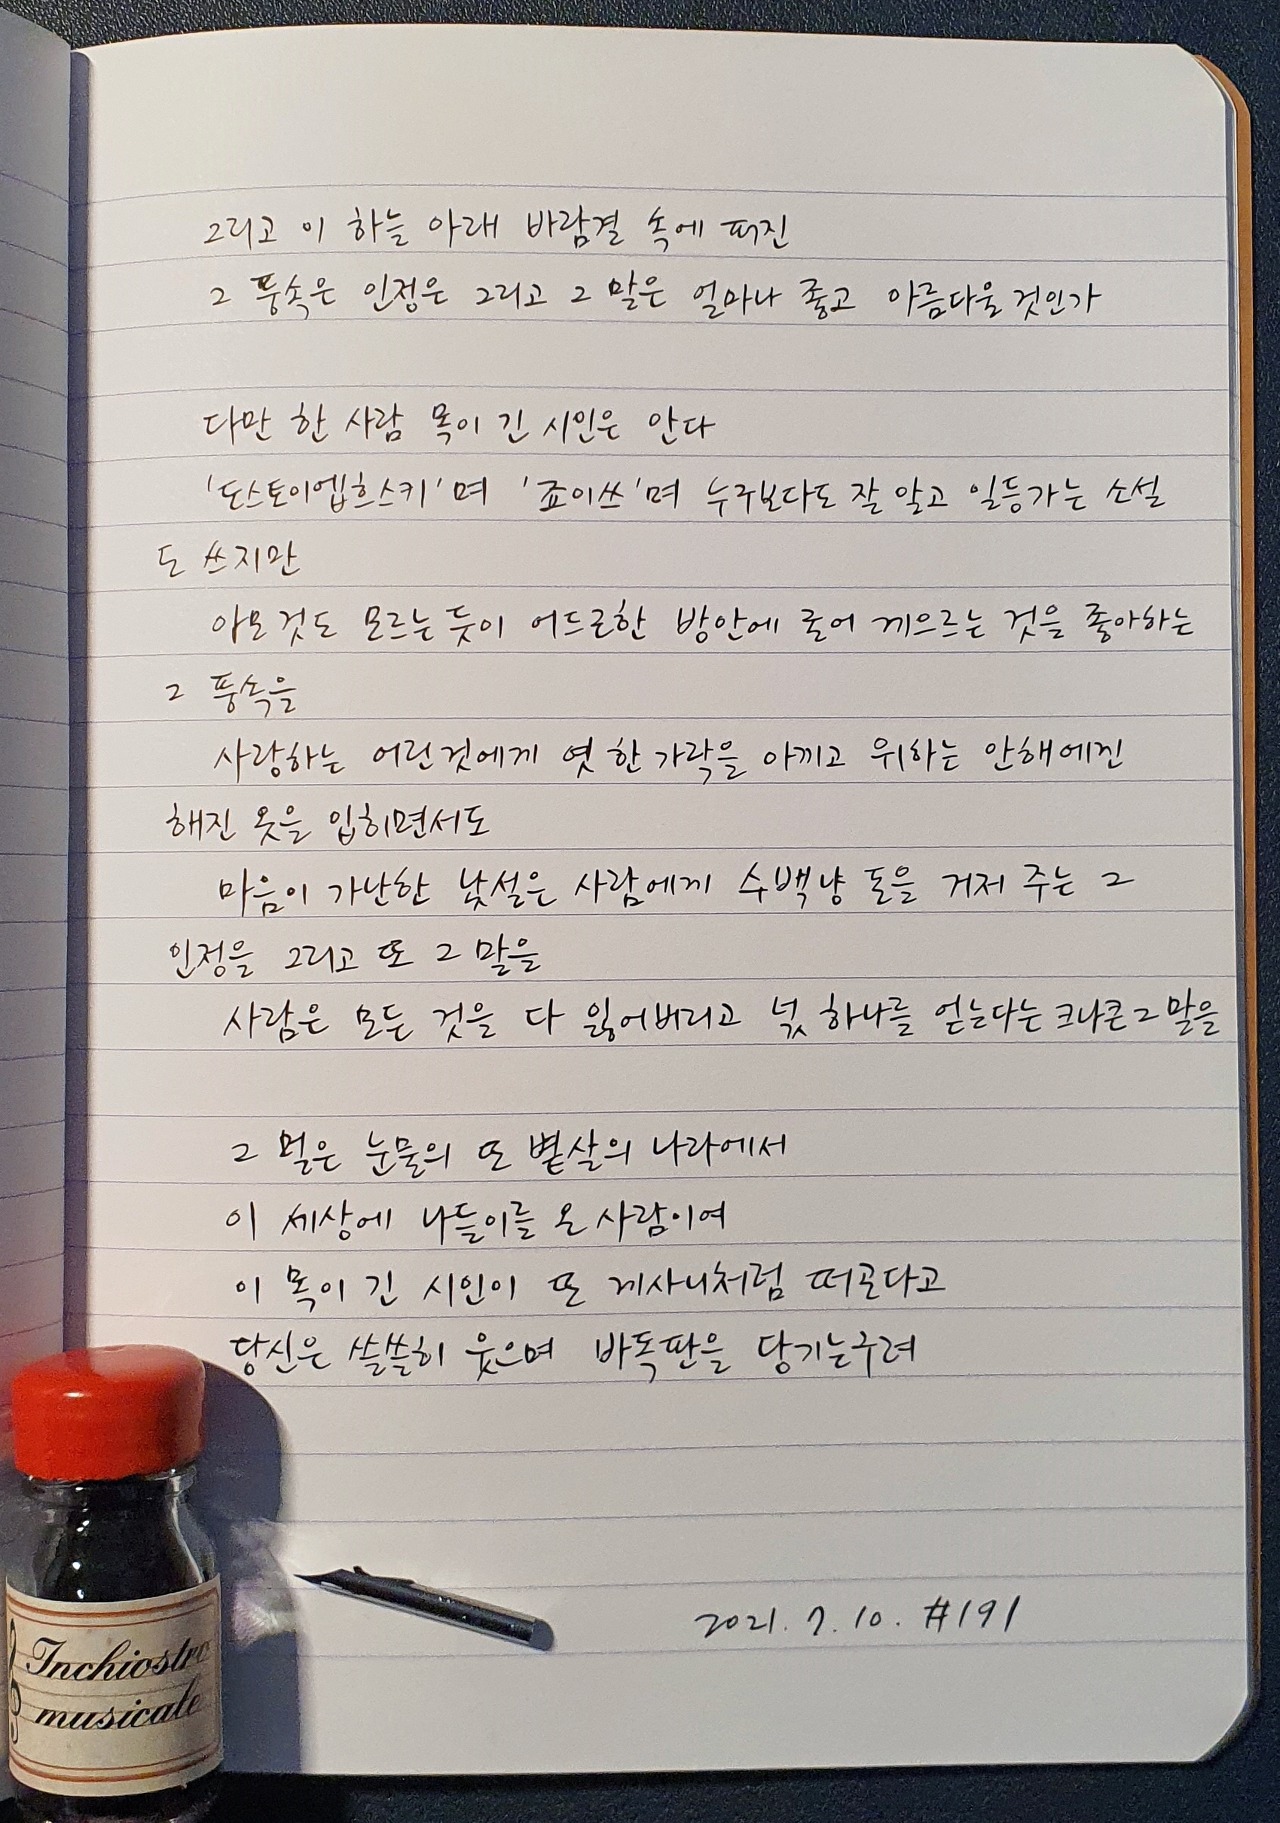 그리고 이 하늘 아래 바람결 속에 퍼진
그 풍속은 인정은 그리고 그 말은 얼마나 좋고 아름다울 것인가
다만 한 사람 목이 긴 시인은 안다
'도스토이엡흐스키'며 '죠이쓰'며 누구보다도 잘 알고 일등가는 소설
도 쓰지만
아모것도 모르는 듯이 어드근한 방안에 굴어 게으르는 것을 좋아하는
그 풍속을
사랑하는 어린것에게 엿 한 가락을 아끼고 위하는 안해에겐
해진 옷을 입히면서도
마음이 가난한 낯설은 사람에게 수백냥 돈을 거저 주는 그
인정을 그리고 또 그 말을
사람은 모든 것을 다 잃어버리고 넋 하나를 얻는다는 크나큰 그 말을
그 멀은 눈물의 또 볕살의 나라에서
이 세상에 나들이를 온 사람이여
이 목이 긴 시인이 또 게사니처럼 떠곤다고
당신은 쓸쓸히 웃으며 바독판을 당기는구려
2021. 7. 10. #191
Inchiostro
musicale